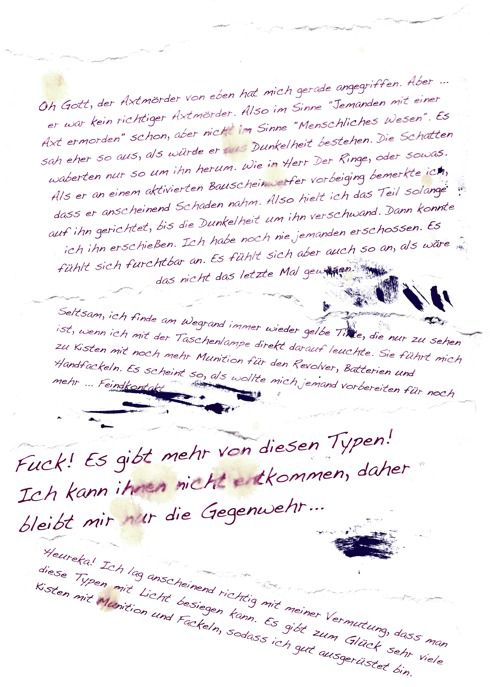 Oh Gott, der Axtmörder von eben hat mich gerade angegriffen. Aber ...
er war kein richtiger Axtmörder. Also im Sinne "Jemanden mit einer
Axt ermorden" schon, aber nicht im Sinne "Menschliches Wesen". Es
sah eher so aus, als würde er aus Dunkelheit bestehen. Die Schatten
waberten nur so um ihn herum. Wie in Herr Der Ringe, oder sowas.
Als er an einem aktivierten Bauscheinwerfer vorbeiging bemerkte ich,
dass er anscheinend Schaden nahm. Also hielt ich das Teil solange
auf ihn gerichtet, bis die Dunkelheit um ihn verschwand. Dann konnte
ich ihn erschießen. Ich habe noch nie jemanden erschossen. Es
fühlt sich furchtbar an. Es fühlt sich aber auch so an, als wäre
das nicht das letzte Mal gewesen.
Seltsam, ich finde am Wegrand immer wieder gelbe Tinte, die nur zu sehen
ist, wenn ich mit der Taschenlampe direkt darauf leuchte. Sie führt mich
zu Kisten mit noch mehr Munition für den Revolver, Batterien und
Handfackeln. Es scheint so, als wollte mich jemand vorbereiten für noch
mehr ... Feindkontakt.
Fuck! Es gibt mehr von diesen Typen!
Ich kann ihnen nicht entkommen, daher
bleibt mir nur die Gegenwehr...
Heureka! Ich lag anscheinend richtig mit meiner Vermutung, dass man
diese Typen mit Licht besiegen kann. Es gibt zum Glück sehr viele
Kisten mit Munition und Fackeln, sodass ich gut ausgerüstet bin.